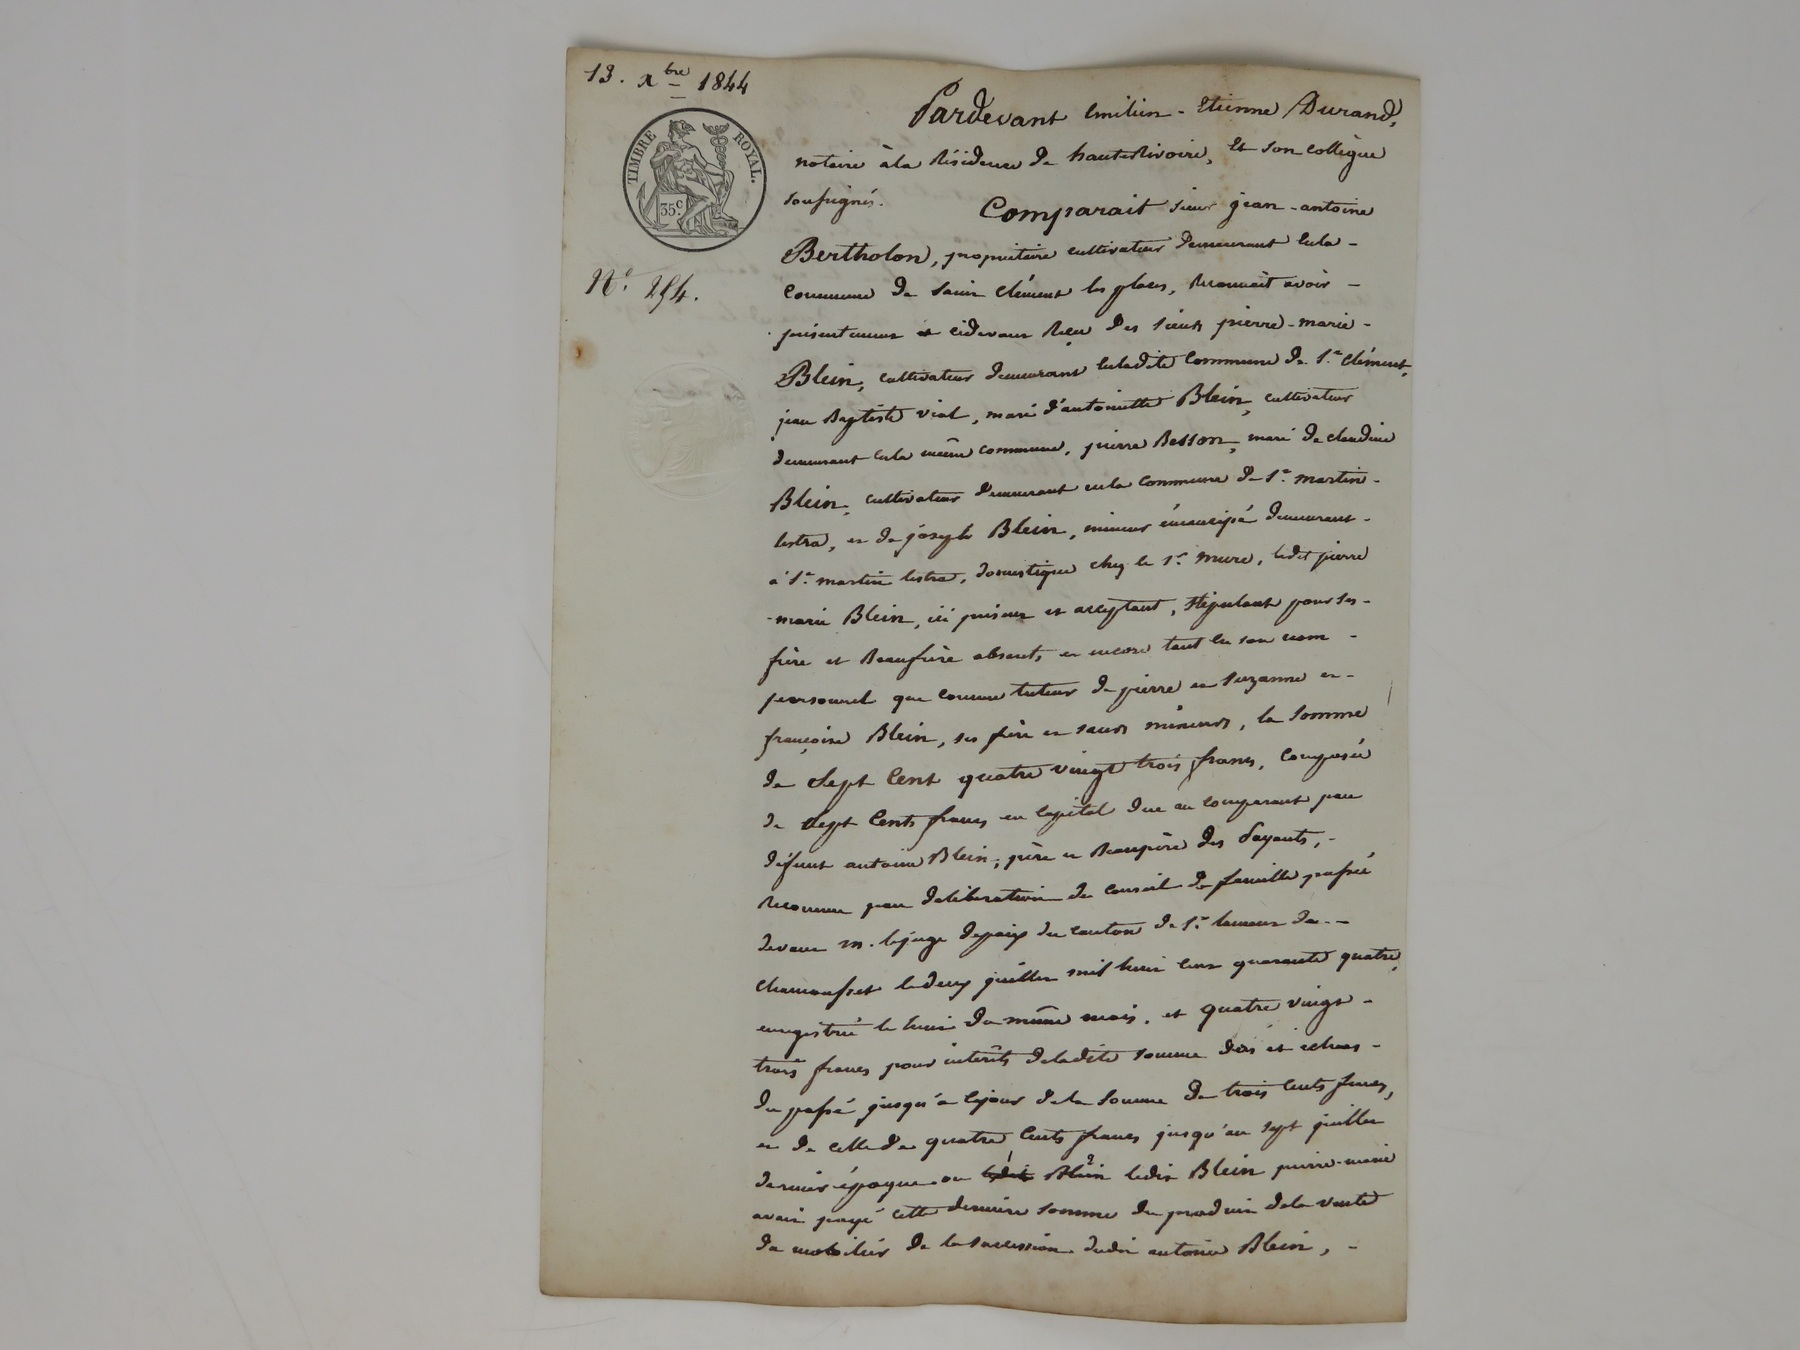 13. Xbre 1844
TIMBRE ROYAL.
35c.
No. 254.
Pardevant Emilien-Etienne Durand,
notaire à la Résidence de hauteRivoire, Et son collègue
soussignés. Comparait sieur jean-antoine
Bertholon, propriétaire cultivateur demeurant enla-
Commune de Saint Clément les places, Reconnait avoir-
présentement et cidevant Reçu des sieurs pierre-marie-
Blein, cultivateur demeurant enladite Commune de St. Clément,
jean Baptiste Vial, mari d'antoinette Blein, cultivateur
demeurant enla même commune, pierre Besson, mari de claudine
Blein, cultivateur demeurant enla Commune de St. martin-
lestra, et de joseph Blein, mineur émancipé demeurant-
à St. martin lestra, domestique chez le Sr. Mure, ledit pierre
-marie Blein, ici présent et acceptant, stipulant pour ses-
frère et Beaufrère absents, et encore tant en son nom-
personnel que comme tuteur de pierre et Suzanne et-
françoise Blein, ses frère et sœurs mineurs, la Somme
de Sept Cent quatre vingt trois francs, composée
de Sept Cents francs en Capital due au comparant par
défunt antoine Blein, père et Beaupère des Payants,-
Reconnue par délibération du Conseil de famille passée
devant m. lejuge depaix du canton de St. laurent de--
Chamousset ledeux juillet mil huit cent quarante quatre,
enregistrée le huit du même mois, et quatre vingt-
trois francs pour intérêts deladite somme dus et échus-
du passé jusqu'à cejour dela Somme de trois Cents francs,
et de celle de quatre Cents francs jusqu'au sept juillet
dernier époque où ledit Blein ledit Blein pierre-marie
avait payé cette dernière somme du produit dela vente
du mobilier de la succession dudit antoine Blein,-